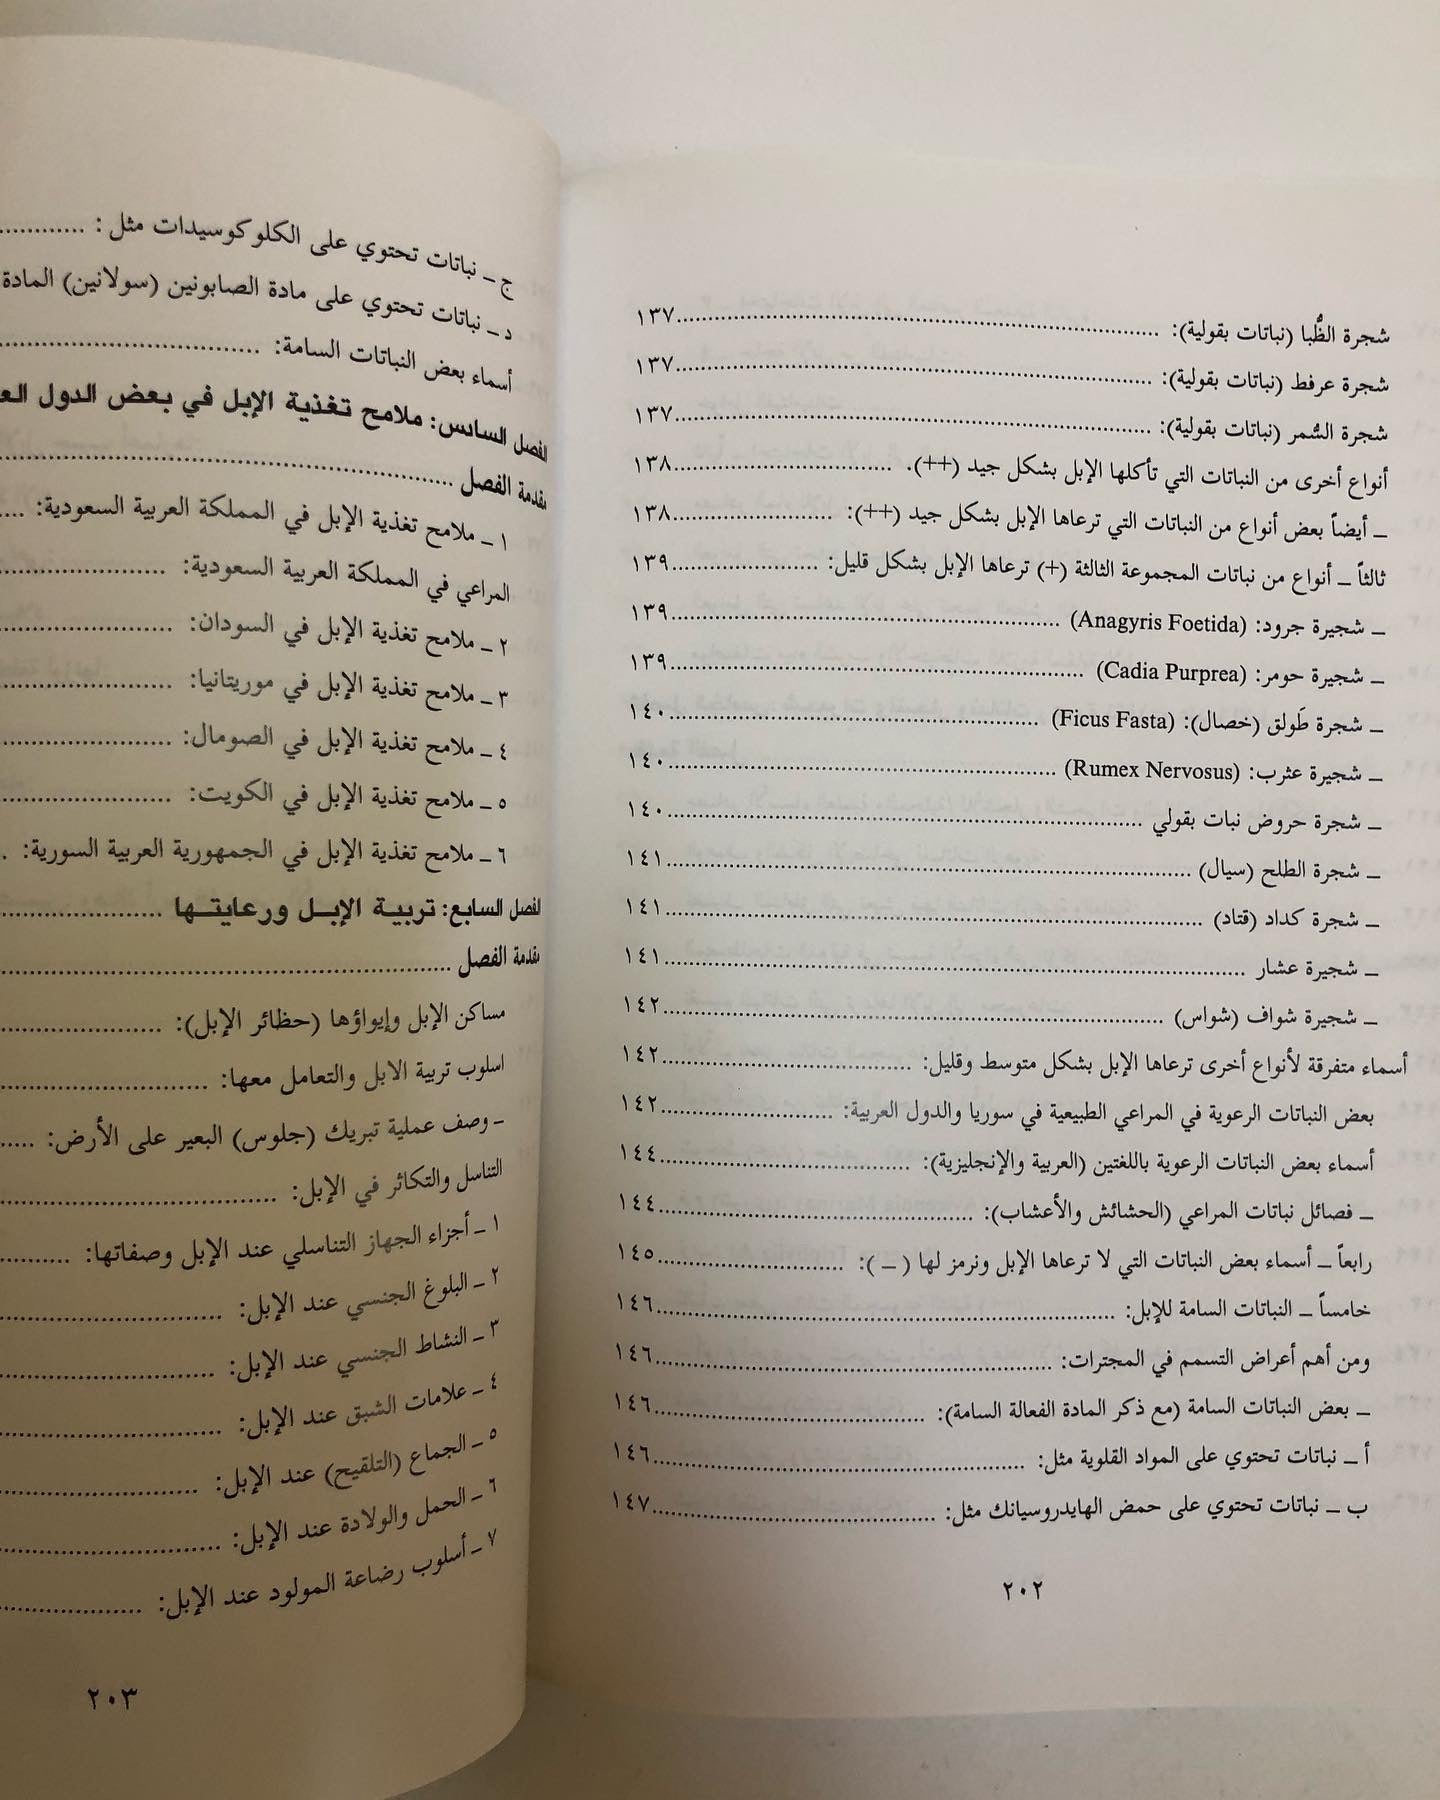 شجرة الظُّبا (نباتات بقولية): ١٣٧
شجرة عرفط (نباتات بقولية): ١٣٧
شجرة السُّمر (نباتات بقولية): ١٣٧
أنواع أخرى من النباتات التي تأكلها الإبل بشكل جيد (++). ١٣٨
ــ أيضاً بعض أنواع من النباتات التي ترعاها الإبل بشكل جيد (++): ١٣٨
ثالثاً ــ أنواع من نباتات المجموعة الثالثة (+) ترعاها الإبل بشكل قليل: ١٣٩
ــ شجيرة جرود: (Anagyris Foetida) ١٣٩
ــ شجيرة حومر: (Cadia Purprea) ١٣٩
ــ شجرة طَولق (خصال): (Ficus Fasta) ١٤٠
ــ شجيرة عثرب: (Rumex Nervosus) ١٤٠
ــ شجرة حروض نبات بقولي ١٤٠
ــ شجرة الطلح (سيال) ١٤١
ــ شجرة كداد (قتاد) ١٤١
ــ شجيرة عشار ١٤١
ــ شجيرة شواف (شواس) ١٤٢
أسماء متفرقة لأنواع أخرى ترعاها الإبل بشكل متوسط وقليل: ١٤٢
بعض النباتات الرعوية في المراعي الطبيعية في سوريا والدول العربية: ١٤٢
أسماء بعض النباتات الرعوية باللغتين (العربية والإنجليزية): ١٤٤
ــ فصائل نباتات المراعي (الحشائش والأعشاب): ١٤٤
رابعاً ــ أسماء بعض النباتات التي لا ترعاها الإبل ونرمز لها (ــ): ١٤٥
خامساً ــ النباتات السامة للإبل: ١٤٦
ومن أهم أعراض التسمم في المجترات: ١٤٦
ــ بعض النباتات السامة (مع ذكر المادة الفعالة السامة): ١٤٦
أ ــ نباتات تحتوي على المواد القلوية مثل: ١٤٦
ب ــ نباتات تحتوي على حمض الهايدروسيانك مثل: ١٤٧
٢٠٢
ج ــ نباتات تحتوي على الكلوكوسيدات مثل:
د ــ نباتات تحتوي على مادة الصابونين (سولانين) المادة
أسماء بعض النباتات السامة:
الفصل السادس: ملامح تغذية الإبل في بعض الدول
مقدمة الفصل
١ ــ ملامح تغذية الإبل في المملكة العربية السعودية:
المراعي في المملكة العربية السعودية:
٢ ــ ملامح تغذية الإبل في السودان:
٣ ــ ملامح تغذية الإبل في موريتانيا:
٤ ــ ملامح تغذية الإبل في الصومال:
٥ ــ ملامح تغذية الإبل في الكويت:
٦ ــ ملامح تغذية الإبل في الجمهورية العربية السورية:
الفصل السابع: تربية الإبل ورعايتها
مقدمة الفصل
مساكن الإبل وإيواؤها (حظائر الإبل):
اسلوب تربية الابل والتعامل معها:
ــ وصف عملية تبريك (جلوس) البعير على الأرض:
التناسل والتكاثر في الإبل:
١ ــ أجزاء الجهاز التناسلي عند الإبل وصفاتها:
٢ ــ البلوغ الجنسي عند الإبل:
٣ ــ النشاط الجنسي عند الإبل:
٤ ــ علامات الشبق عند الإبل:
٥ ــ الجماع (التلقيح) عند الإبل:
٦ ــ الحمل والولادة عند الإبل:
٧ ــ أسلوب رضاعة المولود عند الإبل:
٢٠٣